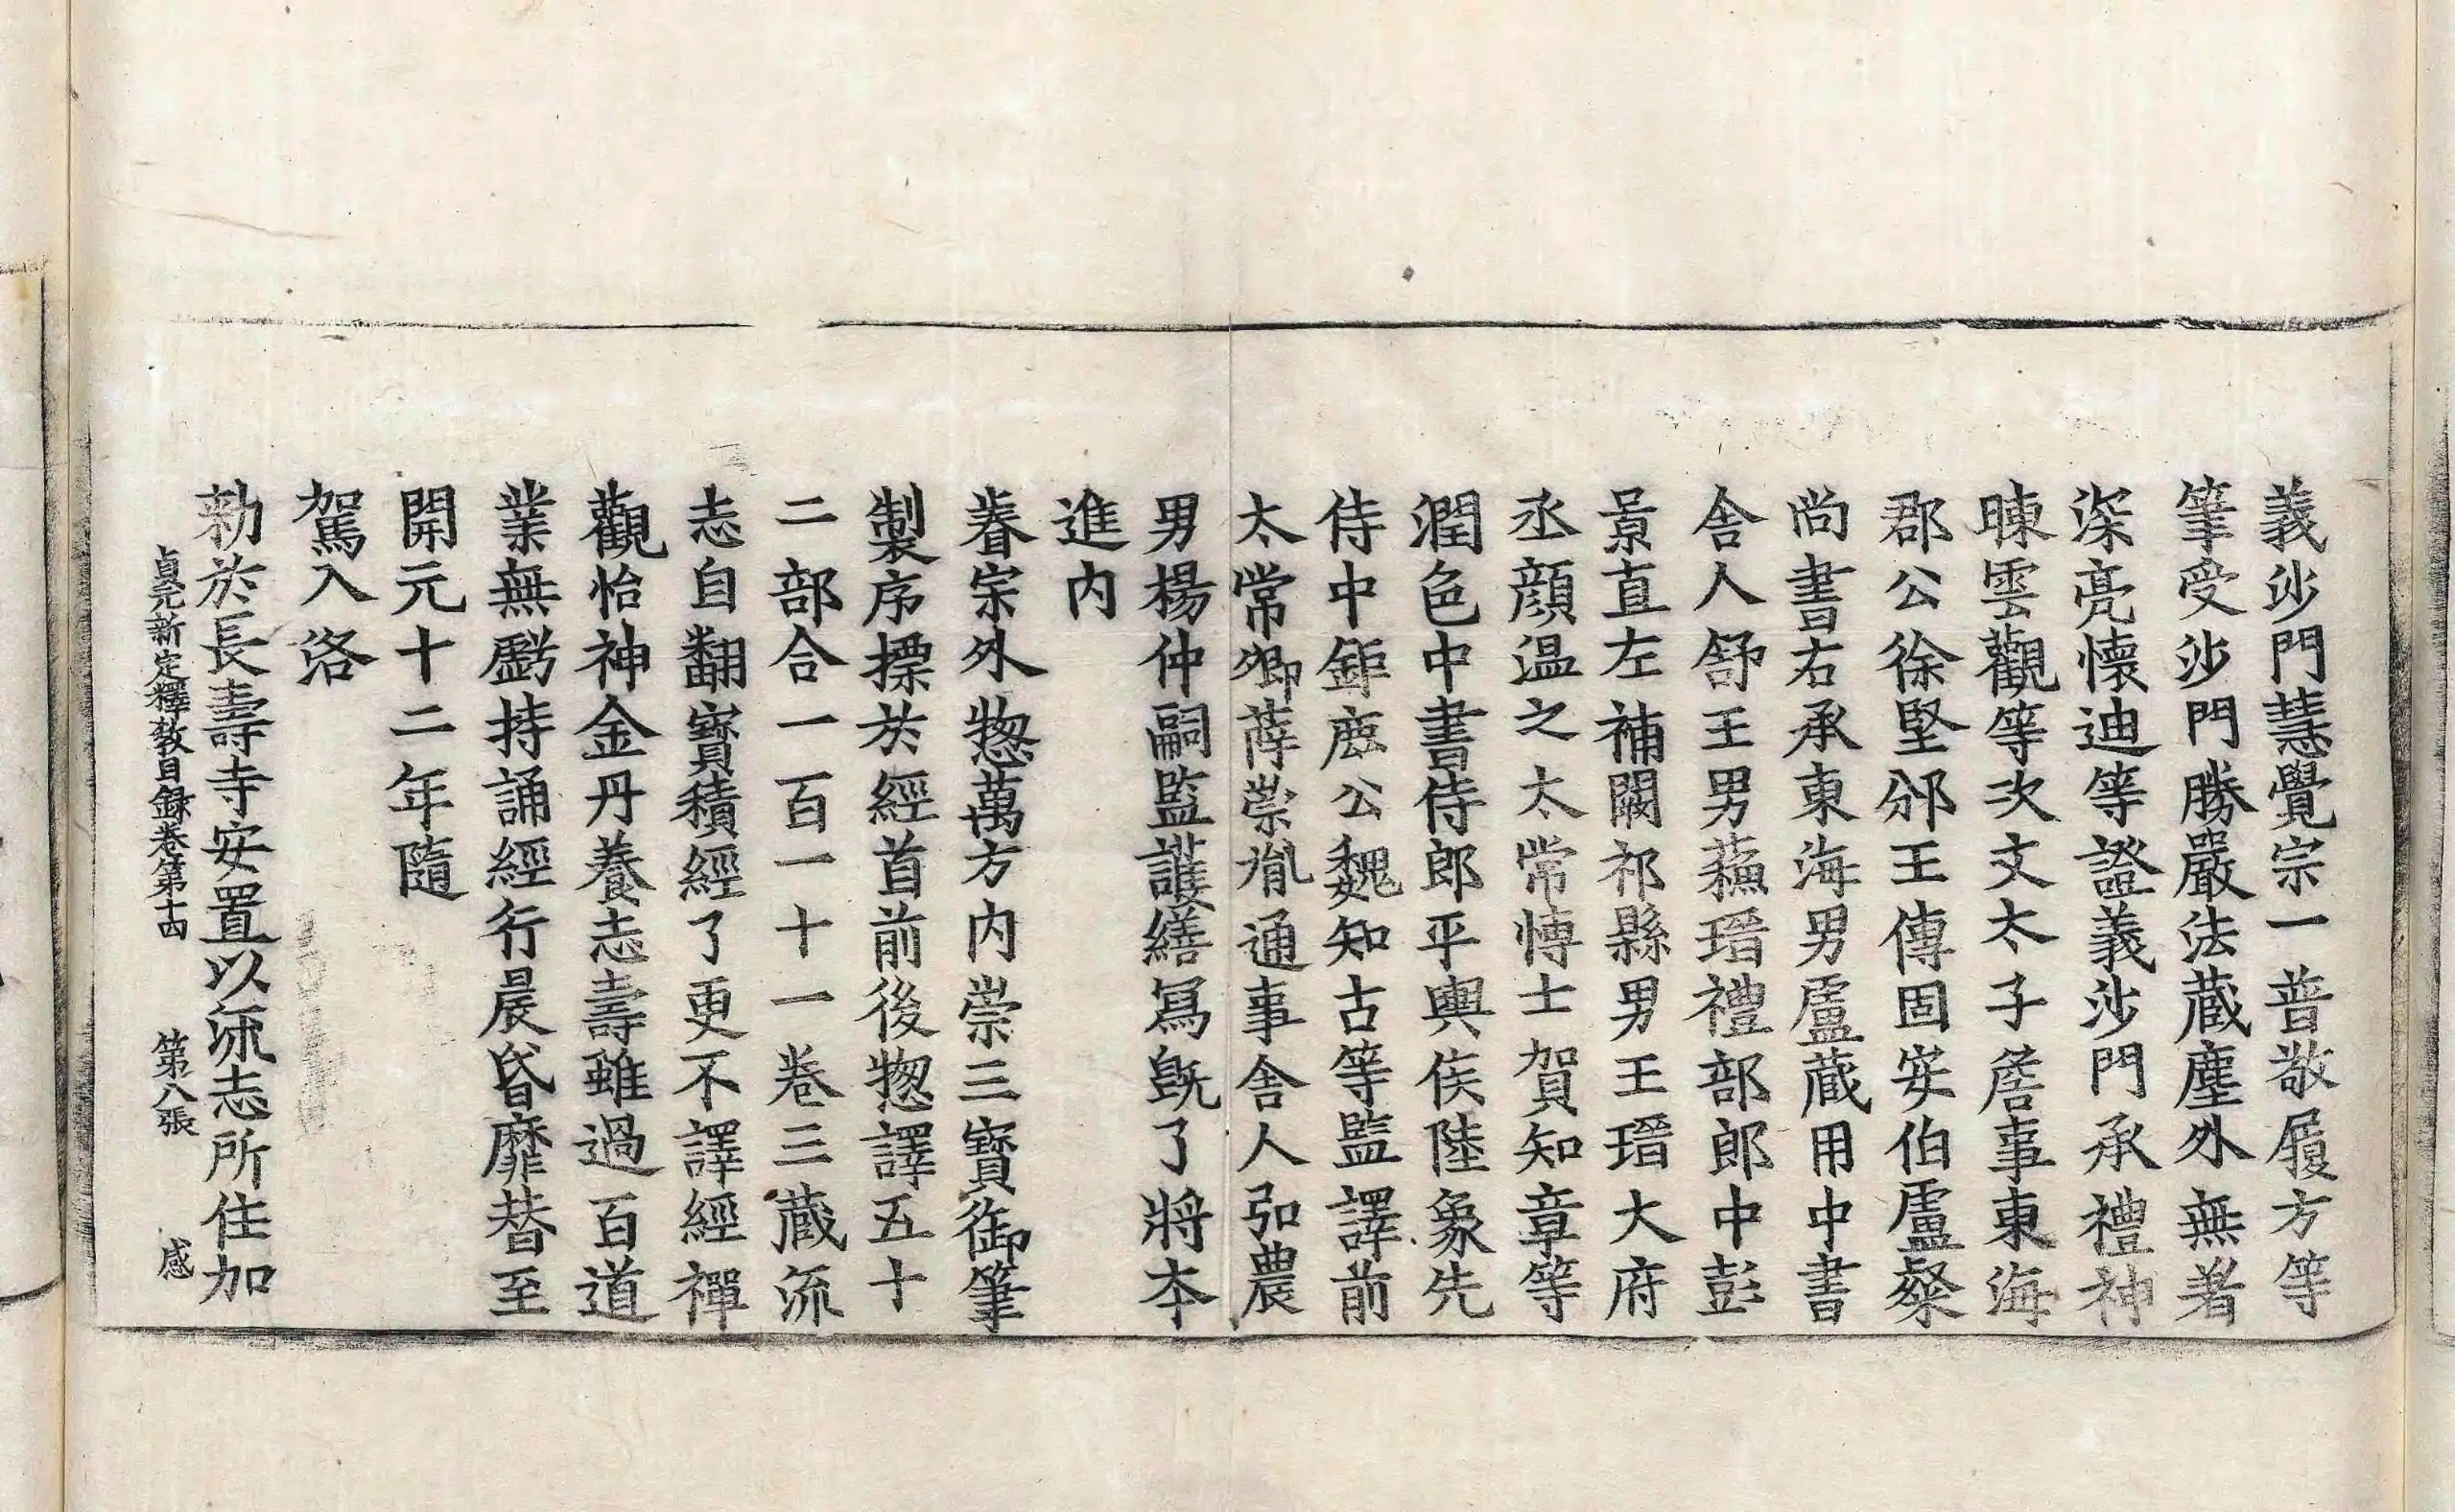 義沙門慧覺宗一普敬履方等
筆受沙門勝嚴法藏塵外無著
深亮懷迪等證義沙門承禮神
暕雲觀等次文太子詹事東海
郡公徐堅邠王傅固安伯盧粲
尚書右丞東海男盧藏用中書
舍人舒王男蘇瑨禮部郎中彭
景直左補闕祁縣男王瑨大府
丞顔温之太常愽士賀知章等
潤色中書侍郎平輿侯陸象先
侍中鉅鹿公魏知古等監譯前
太常卿薛崇胤通事舍人弘農
男楊仲嗣監護繕寫旣了將本
進内
睿宗外揔萬方内崇三寳御筆
製序摽於經首前後揔譯五十
二部合一百一十一卷三藏流
志自翻寳積經了更不譯經禪
觀怡神金丹養志壽雖過百道
業無虧持誦經行晨昏靡替至
開元十二年隨
駕入洛
勑於長壽寺安置以流志所住加
貞元新定釋教目録卷第十四 第八張 感